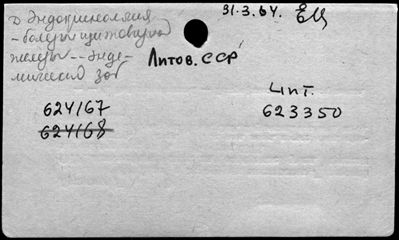 31.3.64. ЕЦ
Эндокринология
- болезни щитовидной
железы -- энде-
мический зоб
Литов. ССР
624167
624168
Цпт.
623350